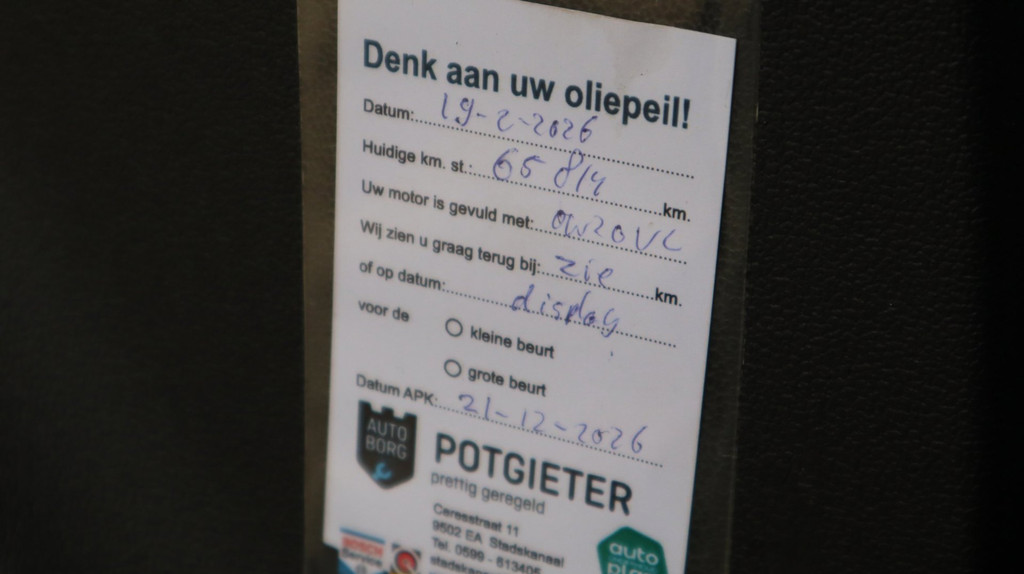 Denk aan uw oliepeil!
Datum: 19-2-2026
Huidige km. st.: 65 814 km.
Uw motor is gevuld met: 0W20VC
Wij zien u graag terug bij: zie km.
of op datum: display
voor de
kleine beurt
grote beurt
Datum APK: 21-12-2026
AUTO
BORG
POTGIETER
prettig geregeld
Ceresstraat 11
9502 EA Stadskanaal
Tel. 0599 - 613406
BOSCH
Service
auto